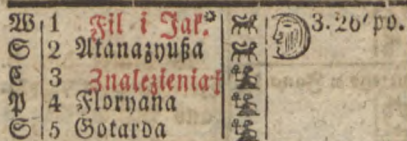 W 1 Fil i Jak. 3. 26' po.
S 2 Atanazyußa
C 3 Znalezienia†
P 4 Floryana
S 5 Gotarda